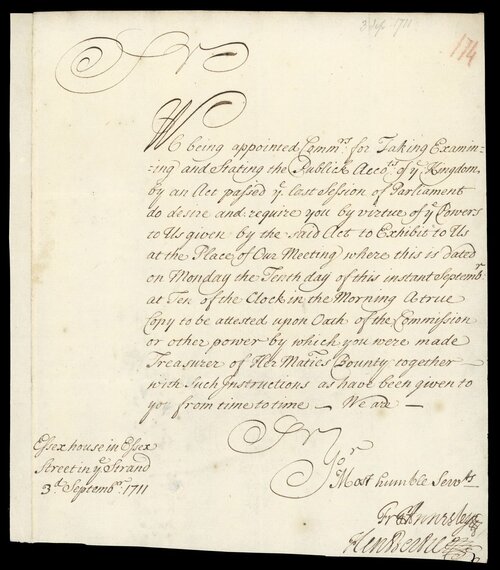 3 Sep 1711
174
Sr
We being appointed Commrs. for Taking Examin=
=ing and Stating the Publick Accots. of ye Kingdom
by an Act passed ye last Session of Parliament
do desire and require you by virtue of ye Powers
to Us given by the said Act to Exhibit to Us
at the Place of Our Meeting where this is dated
on Monday the Tenth day of this instant Septembr.
at Ten of the Clock in the Morning A true
Copy to be attested upon Oath of the Commission
or other power by which you were made
Treasurer of Her Maties Bounty together —
with Such Instructions as have been given to
you from time to time — We are —
Sr
Yor
Most humble Servts
Essex house in Essex
Street in ye Strand
3d. Septembr. 1711
Fr Annesley
Hen Bertie